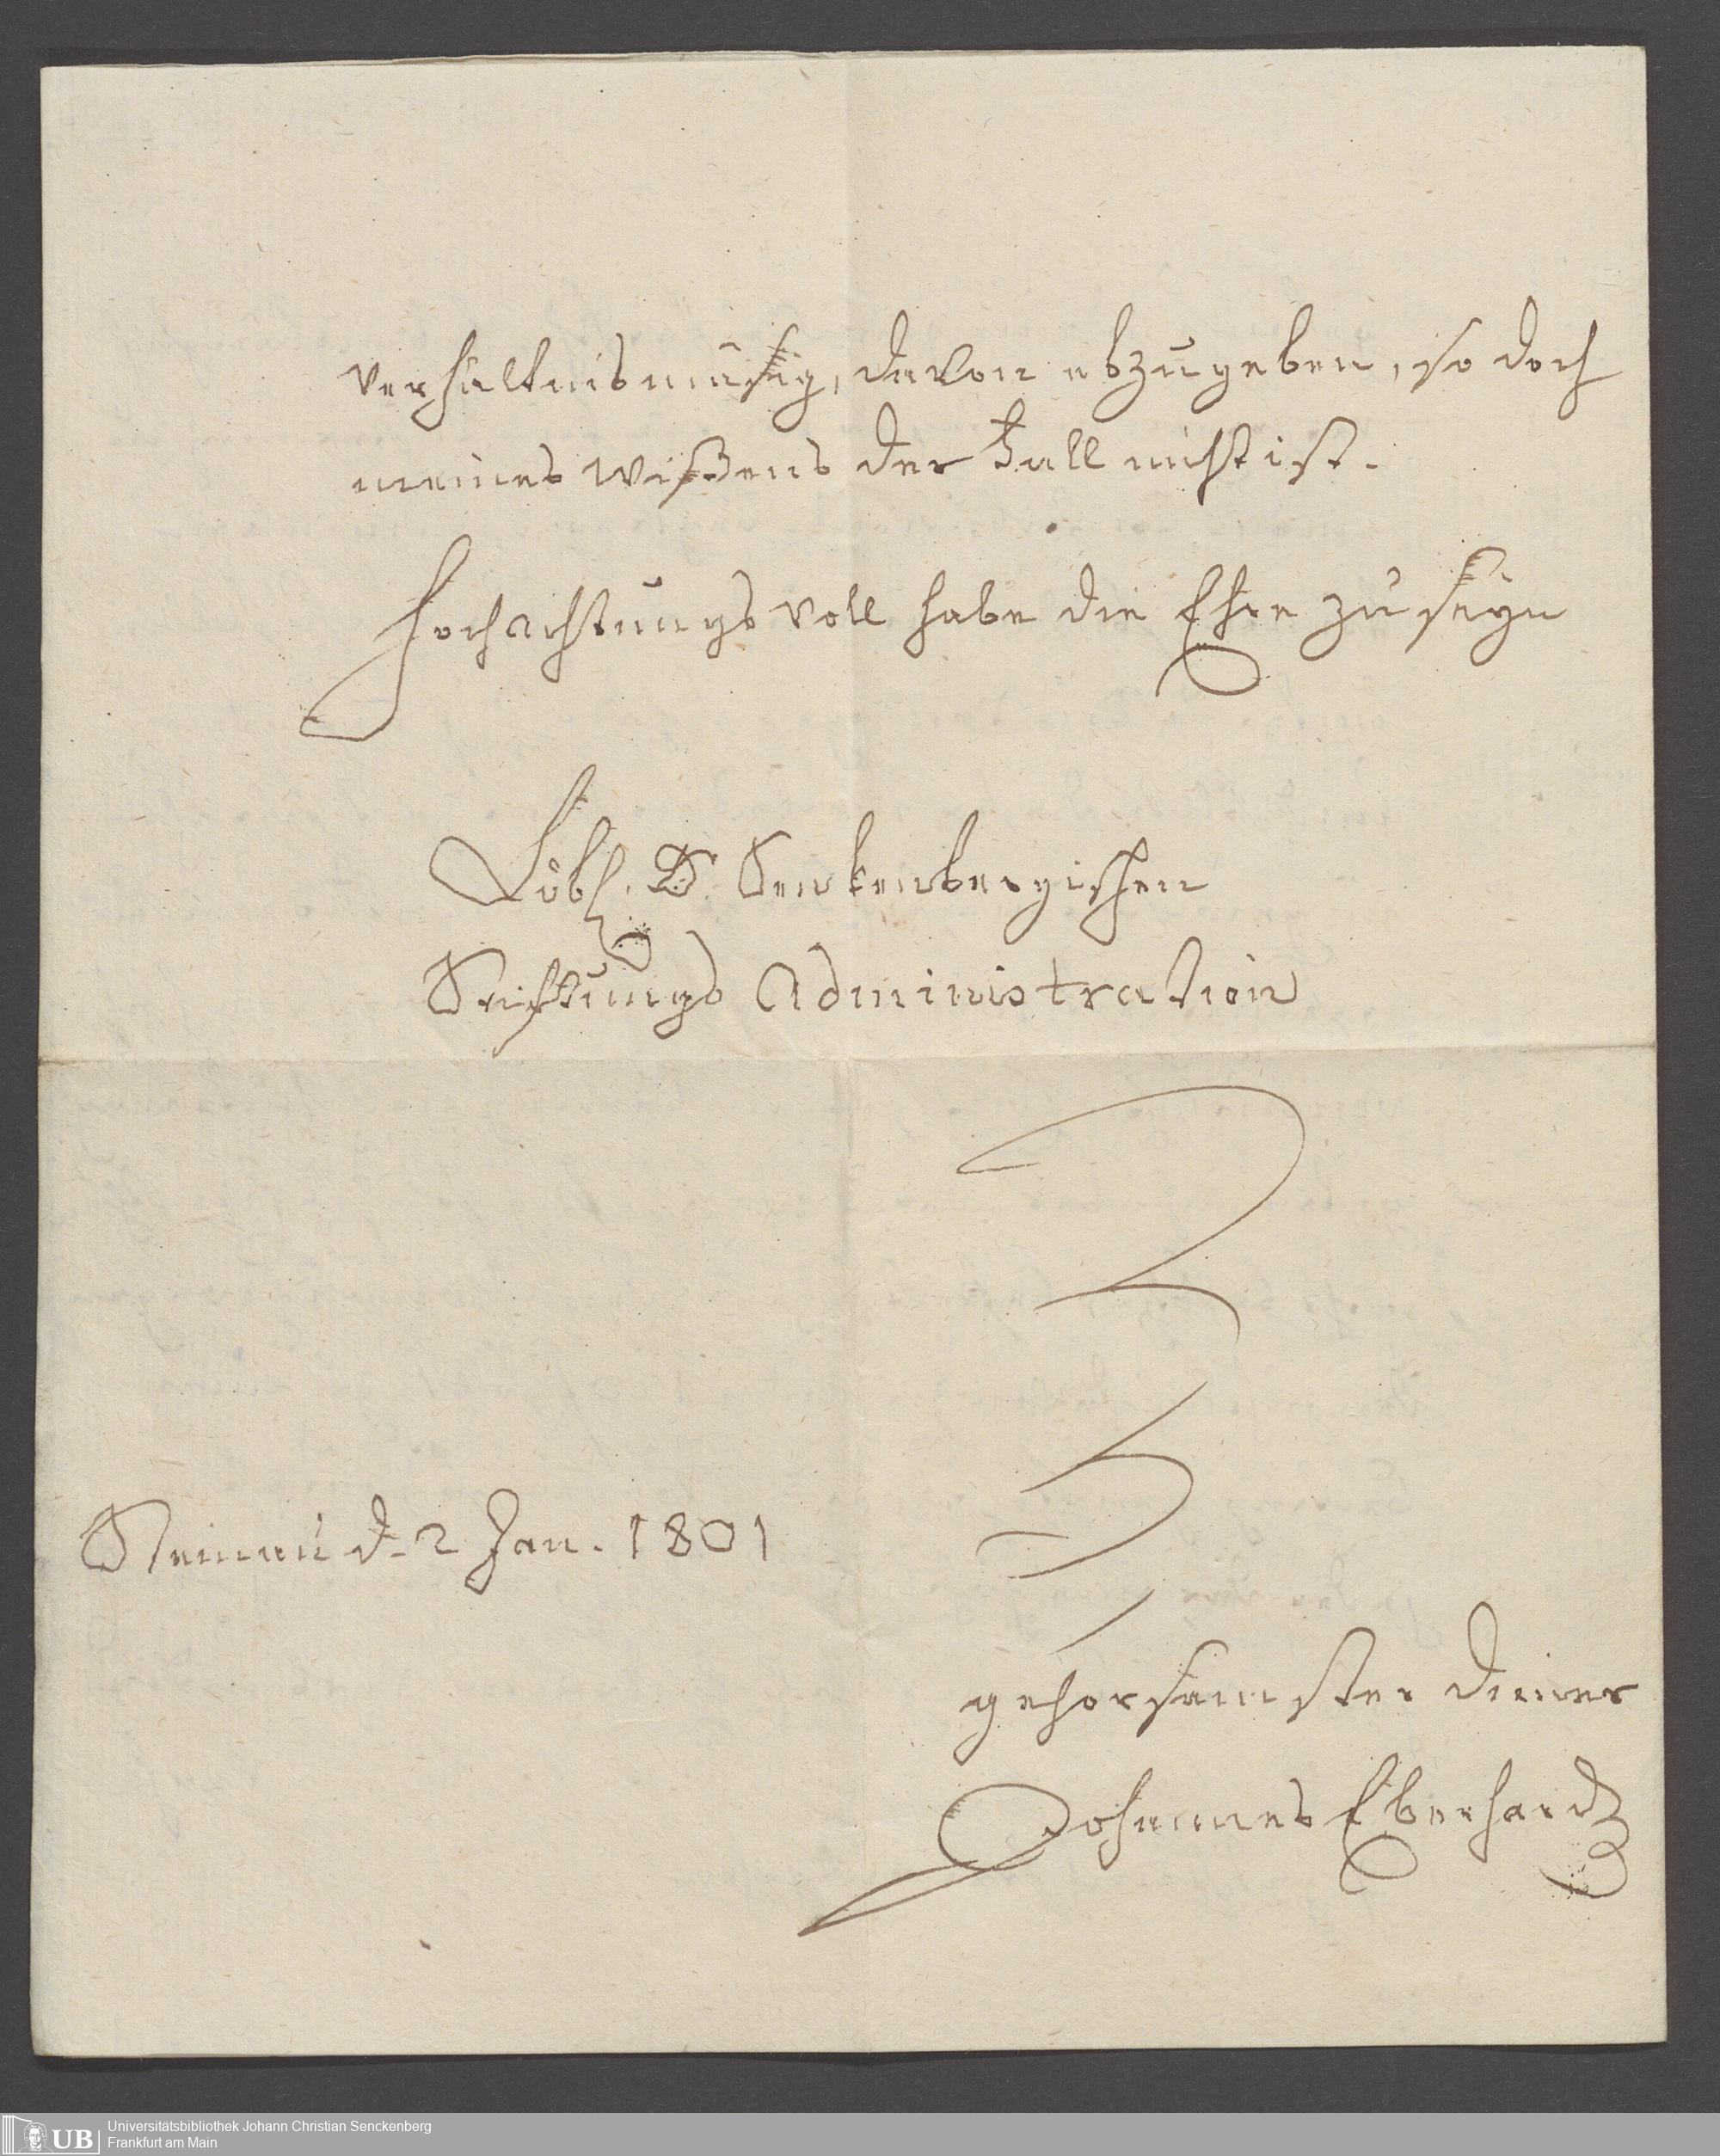 verhältnismäsig, davon abzugeben, so doch
meines wißens der Fall nicht ist.
Hochachtungsvoll habe die Ehre zu seyn
Löbl. D. Senkenbergischen
Stiftungs Administration
Steinau d. 2 Jan. 1801
gehorsamster diener
Johannes Eberhard
UB
Universitätsbibliothek Johann Christian Senckenberg
Frankfurt am Main